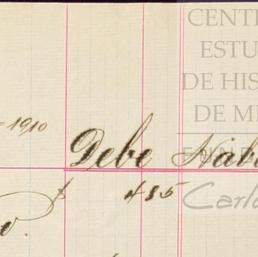 CENT
ESTU
DE HIS
DE M
1910
Debe Habe
$ 485
Carlo